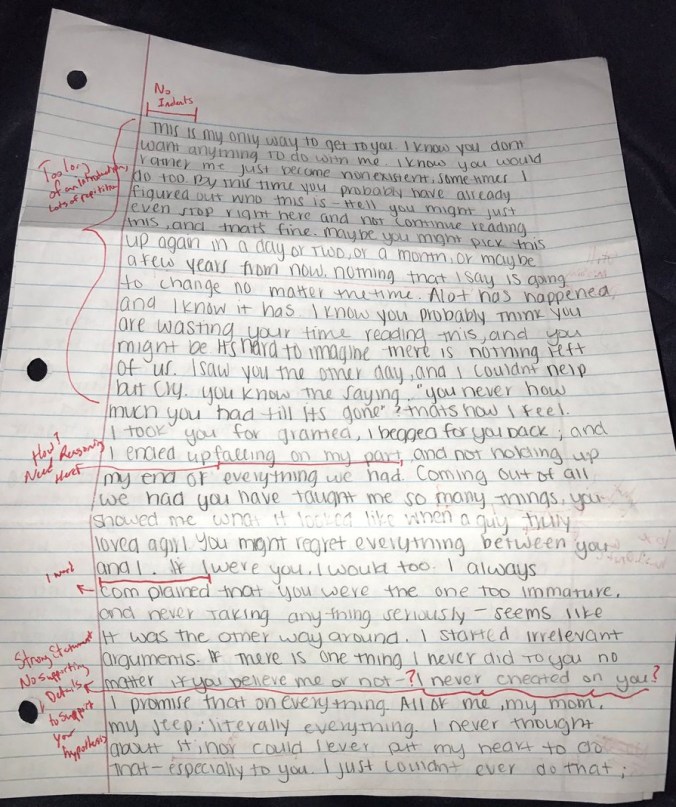 No
Indents
This is my only way to get to you I know you dont
want anything to do with me. I know you would
rather me just become nonexistent, sometimes I
do too By this time you probably have already
figured out who this is - Hell you might just
even stop right here and not continue reading
this, and thats fine. maybe you might pick this
up again in a day or two, or a month, or maybe
a few years from now. nothing that I say is going
to change no matter the time. Alot has happened,
and I know it has I know you probably think you
are wasting your time reading this, and you
might be Its hard to imagine there is nothing left
of us. I saw you the other day, and I couldnt help
but cry. you know the saying, "you never how
much you had till its gone" ? thats how I feel.
I took you for granted, I begged for you back ; and
I ended up falling on my part, and not holding up
my end of everything we had. Coming out of all
we had you have taught me so many things, you
showed me what it looked like when a guy truly
loved a girl. You might regret everything between you
and I. If I were you, I would too. I always
complained that you were the one too immature,
and never taking anything seriously - seems like
it was the other way around. I started irrelevant
arguments. If there is one thing I never did to you no
matter if you believe me or not -? I never cheated on you?
I promise that on everything. All of me, my mom,
my jeep; literally everything. I never thought
about it; nor could I ever put my heart to do
that - especially to you. I just couldnt ever do that;
Too long
of an introduction,
Lots of repitition
How?
Need Reasoning
Here?
1 word
Strong Statement
No supporting
Details
to support
your
hypothesis